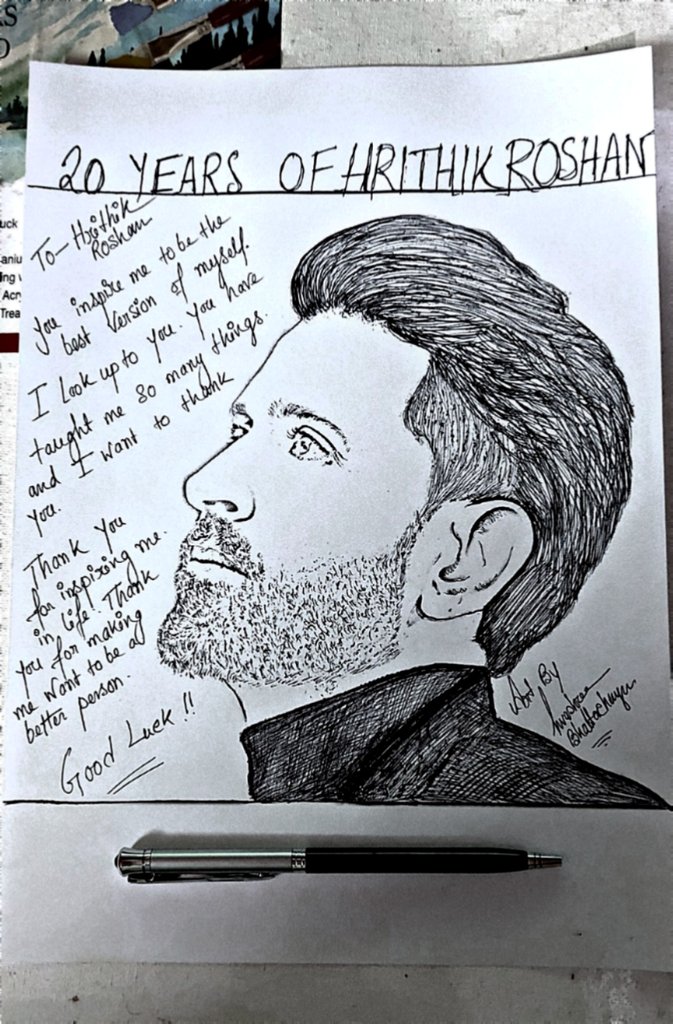 20 YEARS OF HRITHIK ROSHAN
To - Hrithik
Roshan
You inspire me to be the
best version of myself.
I look up to you. You have
taught me so many things.
and I want to thank
you.
Thank you
for inspiring me.
in life! Thank
you for making
me want to be a
better person.
Good Luck !!
Art By
Bhattacharya
KS
O
uck
ing
Acry
Trea